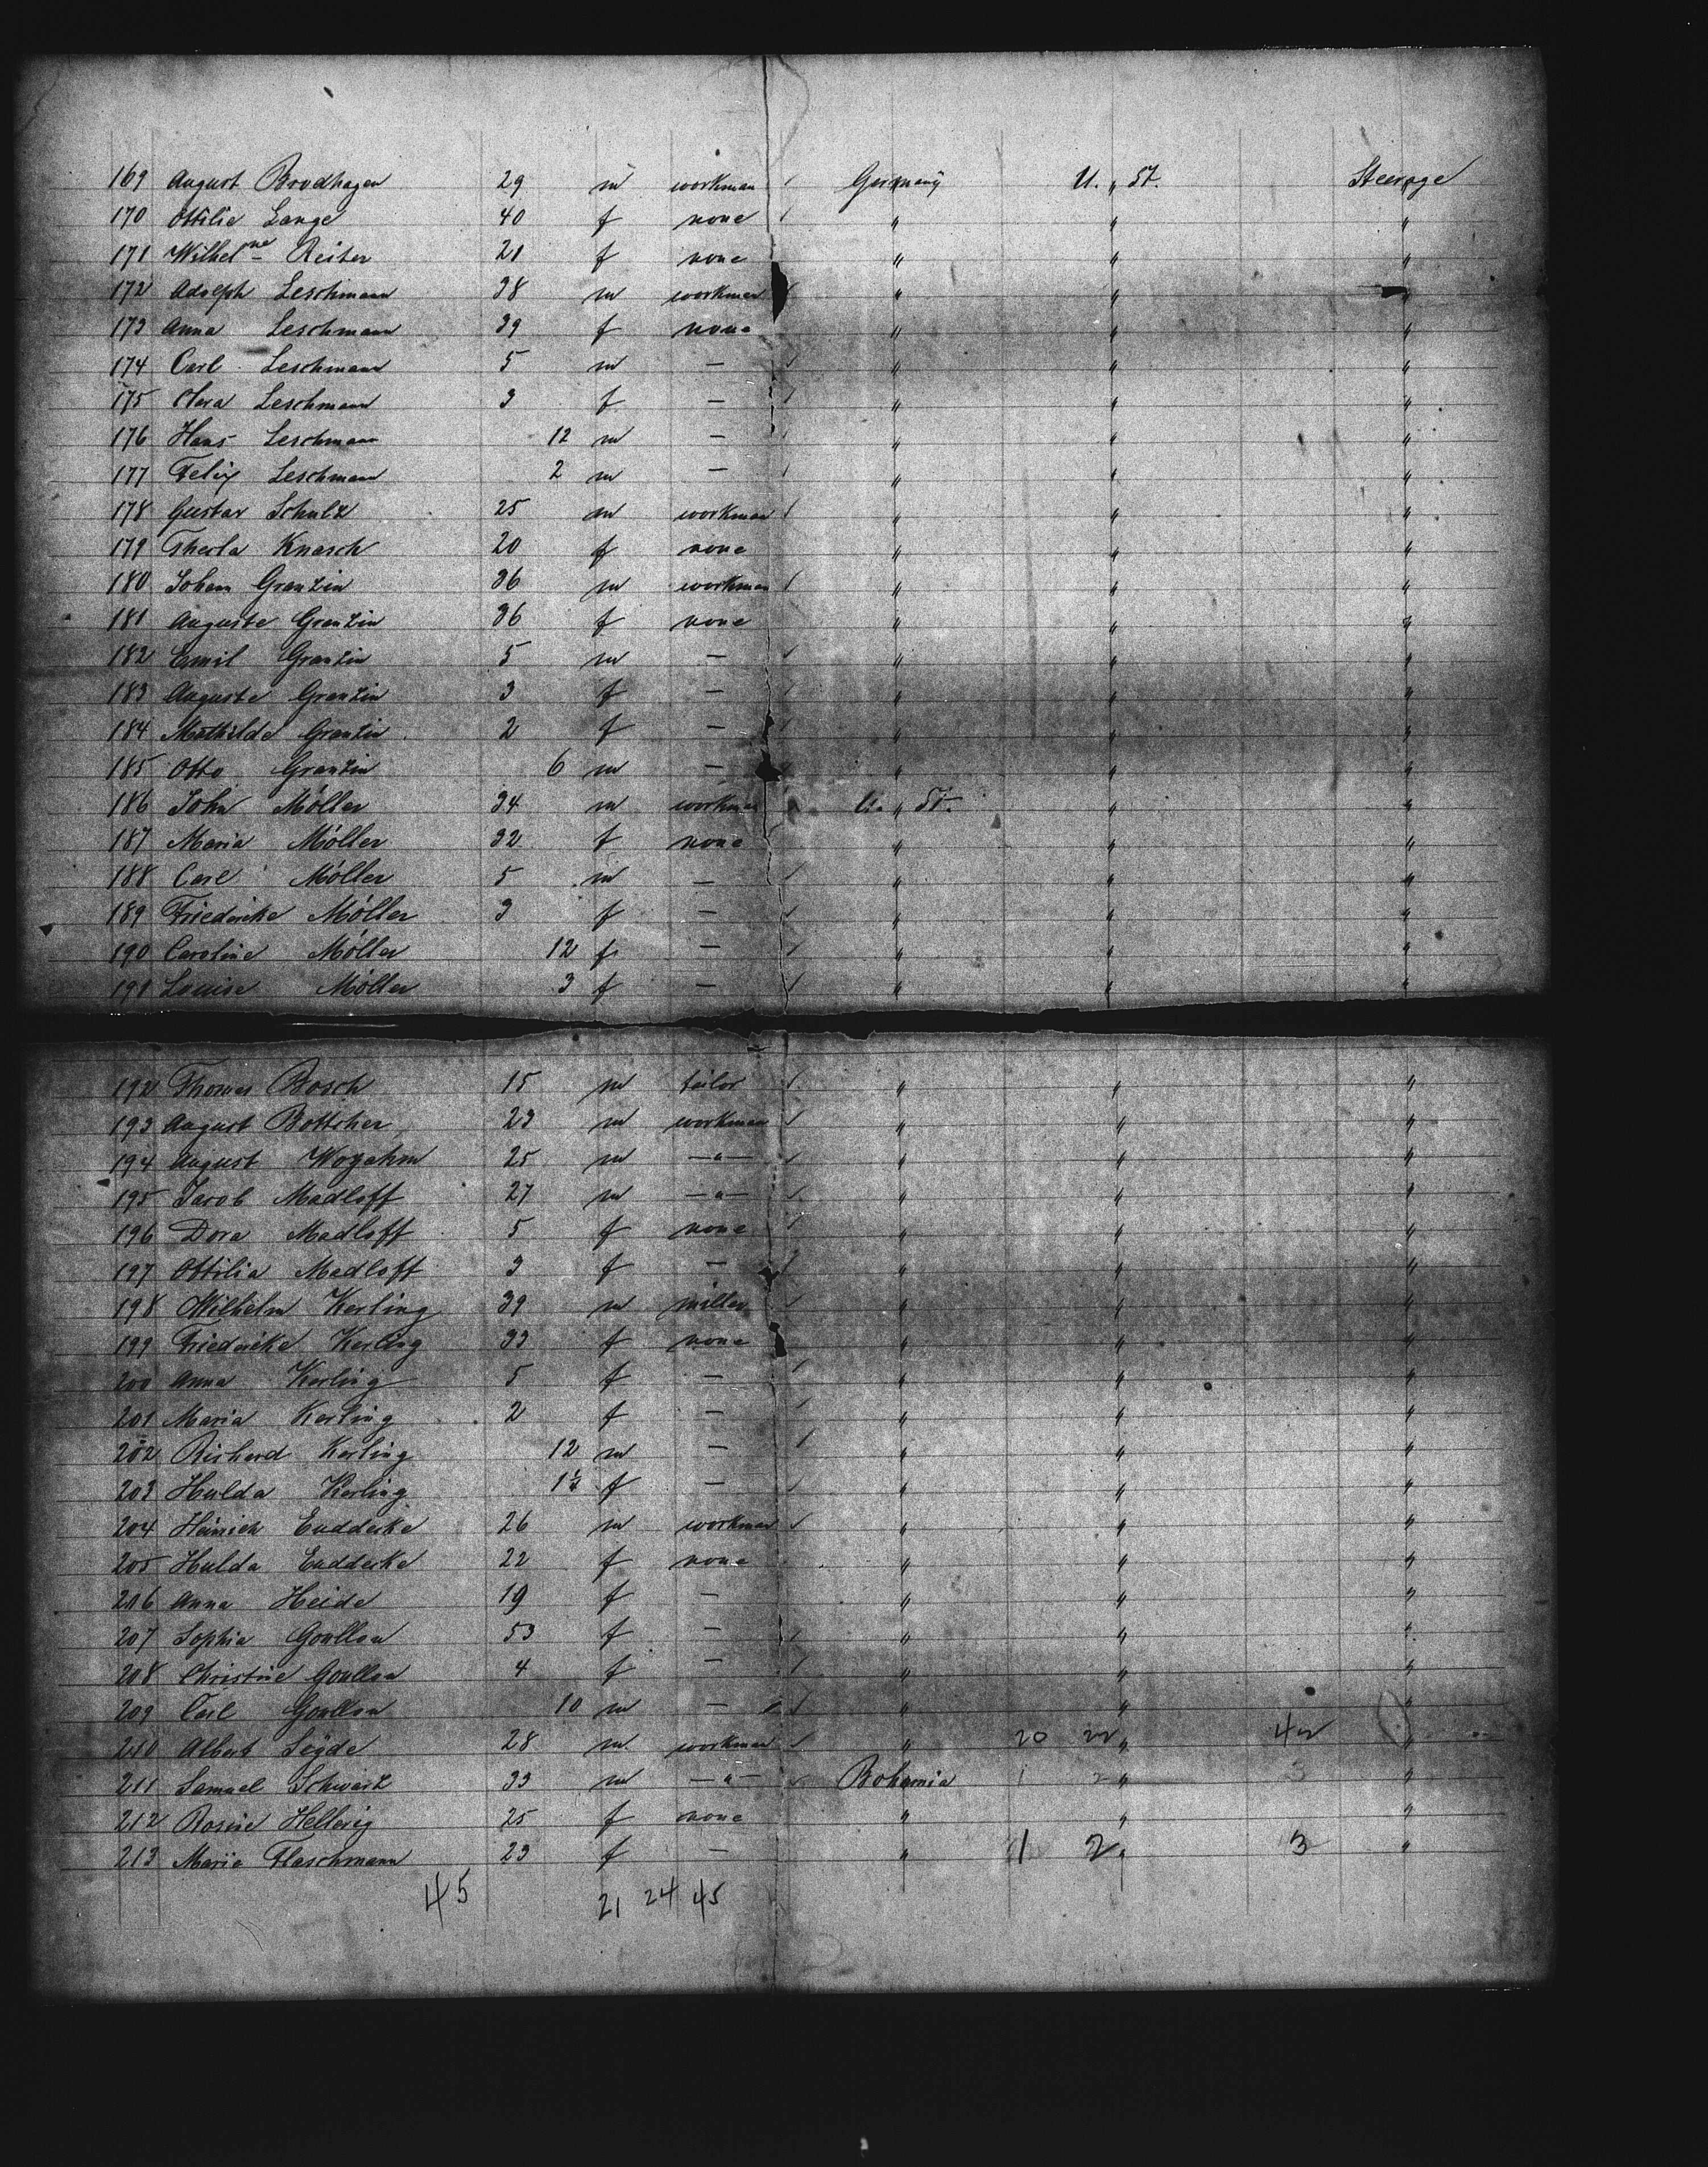 169 August Brodhagen 29 m workman Germany U. St. Steerage
170 Ottilie Lange 40 f none " " "
171 Wilhel ne Reiter 21 f none " " "
172 Adolph Leschmann 38 m workman " " "
173 Anna Leschmann 39 f none " " "
174 Carl Leschmann 5 m — " " "
175 Clara Leschmann 3 f — " " "
176 Hans Leschmann 12 m — " " "
177 Felix Leschmann 2 m — " " "
178 Gustav Schulz 25 m workman " " "
179 Thecla Knasch 20 f none " " "
180 Johann Granzin 36 m workman " " "
181 Auguste Granzin 36 f none " " "
182 Emil Granzin 5 m — " " "
183 Auguste Granzin 3 f — " " "
184 Mathilde Granzin 2 f — " " "
185 Otto Granzin 6 m — " " "
186 John Möller 34 m workman U. St. " "
187 Maria Möller 32 f none " " "
188 Carl Möller 5 m — " " "
189 Friederike Möller 3 f — " " "
190 Caroline Möller 12 f — " " "
191 Louise Möller 3 f — " " "
192 Thomas Bosch 15 m tailor " " "
193 August Bottcher 23 m workman " " "
194 August 25 m —"— " " "
195 Jacob Madloff 27 m —"— " " "
196 Dora Madloff 5 f none " " "
197 Ottilia Madloff 3 f — " " "
198 Wilhelm Kerling 39 m miller " " "
199 Friederike Kerling 33 f none " " "
200 Anna Kerling 5 f — " " "
201 Maria Kerling 2 f — " " "
202 Richard Kerling 12 m — " " "
203 Hulda Kerling f — " " "
204 Heinrich Luddecke 26 m workman " " "
205 Hulda Luddecke 22 f none " " "
206 Anna Heide 19 f — " " "
207 Sophia Goullon 53 f — " " "
208 Christine Goullon 4 f — " " "
209 Carl Goullon 10 m — " " "
210 Albert 28 m workman " 20 22 " 42 "
211 Samuel Schwarz 33 m —"— Bohemia 1 2 " 3 "
212 Rosine Hellerig 25 f none " " "
213 Marie Flaschmann 23 f — " 1 2 " 3 "
45 21 24 45